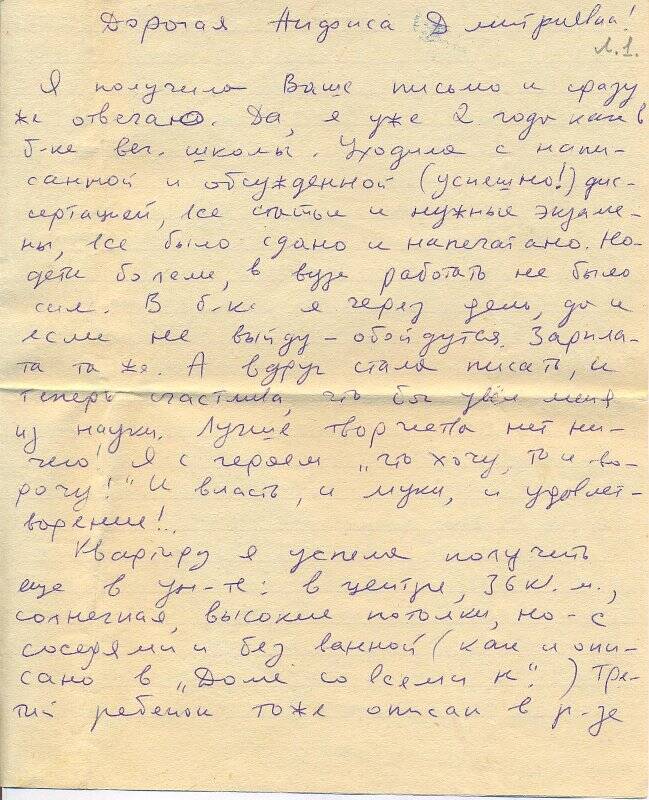 Дорогая Анфиса Дмитриевна!
л.1.
Я получила Ваше письмо и сразу
же отвечаю. Да, я уже 2 года как в
б-ке веч. школы. Уходила с напи-
санной и обсужденной (успешно!) дис-
сертацией, все статьи и нужные экзаме-
ны, все было сдано и напечатано. Но-
дети болели, в вузе работать не было
сил. В б-ке я через день, да и
если не выйду - обойдутся. Зарпла-
та та же. А вдруг стала писать, и
теперь счастлива, что бог увёл меня
из науки. Лучше творчества нет ни-
чего! Я с героем „что хочу, то и во-
рочу!" И власть, и муки, и удовлет-
ворение!..
Квартиру я успела получить
еще в ун-те: в центре, 36 кв. м.,
солнечная, высокие потолки, но - с
соседями и без ванной (как и опи-
сано в „Доме со всеми н".) Тре-
тий ребенок тоже описан в р-зе